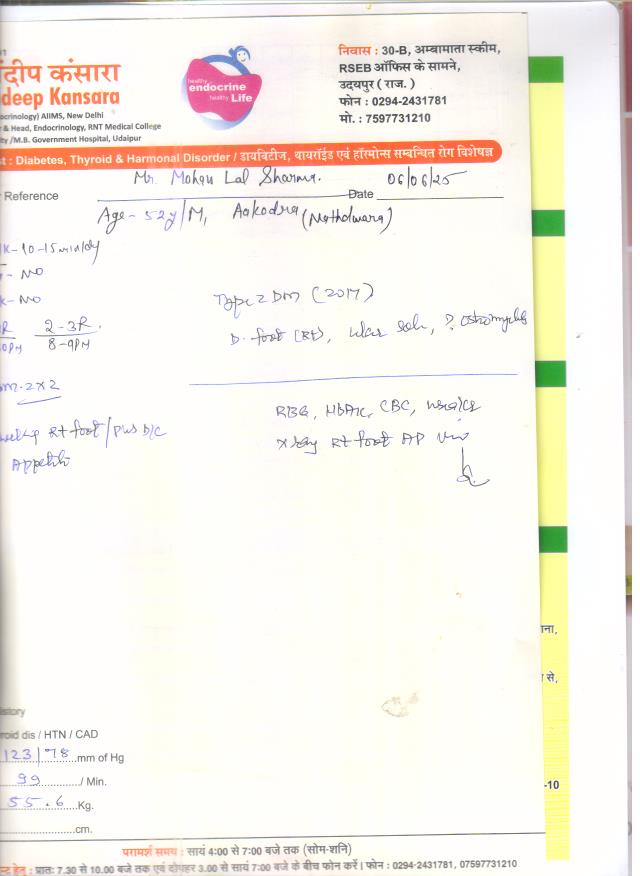 दीप कंसारा
deep Kansara
ocrinology) AIIMS, New Delhi
& Head, Endocrinology, RNT Medical College
ity /M.B. Government Hospital, Udaipur
healthy
endocrine
healthy Life
निवास : 30-B, अम्बामाता स्कीम,
RSEB ऑफिस के सामने,
उदयपुर ( राज. )
फोन : 0294-2431781
मो. : 7597731210
t : Diabetes, Thyroid & Harmonal Disorder / डायबिटीज, थायरॉईड एवं हॉरमोन्स सम्बन्धित रोग विशेषज्ञ
Mr. Mohan Lal Sharma.
Reference
Date 06/06/25
Age - 52y/M, Aakodra (Nathdwara)
K-10-15min/dy
- NO
K- NO
R 2-3R.
0PM 8-9PM
Type 2 DM (2017)
D. foot (Rt), ulcer sole, ? Osteomyelitis
m. 2x2
RBG, HbA1c, CBC,
Rt foot / pus D/C
X ray Rt foot AP view
Appetite
istory
roid dis / HTN / CAD
123/78 mm of Hg
99 / Min.
55.6 Kg.
cm.
ाना,
से,
-10
परामर्श समय : सायं 4:00 से 7:00 बजे तक (सोम-शनि)
न्ट हेतु : प्रातः 7.30 से 10.00 बजे तक एवं दोपहर 3.00 से सायं 7:00 बजे के बीच फोन करें। फोन : 0294-2431781, 07597731210